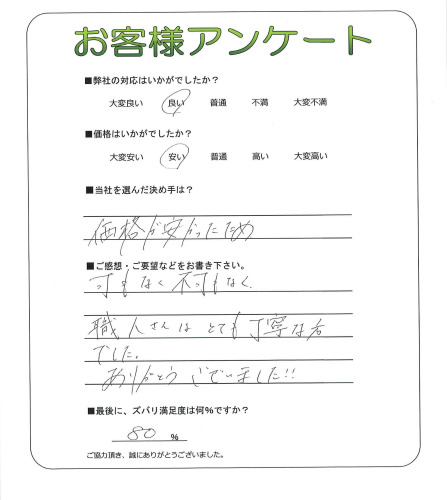 お客様アンケート
■弊社の対応はいかがでしたか？
大変良い 良い 普通 不満 大変不満
■価格はいかがでしたか？
大変安い 安い 普通 高い 大変高い
■当社を選んだ決め手は？
価格が安かったため
■ご感想・ご要望などをお書き下さい。
可もなく不可もなく。
職人さんはとても丁寧な方
でした。
ありがとうございました!!
■最後に、ズバリ満足度は何％ですか？
80 ％
ご協力頂き、誠にありがとうございました。